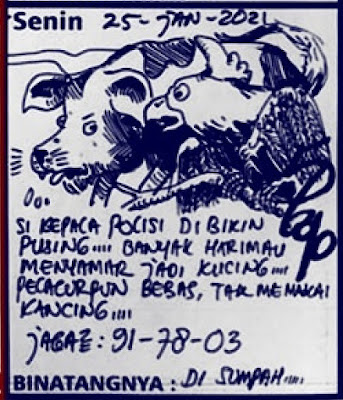 Senin 25-JAN-2021
SI KEPALA POLISI DIBIKIN
PUSING.... BANYAK HARIMAU
MENYAMAR JADI KUCING....
PELACURPUN BEBAS, TAK MEMAKAI
KANCING....
JAGAZ: 91-78-03
BINATANGNYA: DI SUMPAH.....